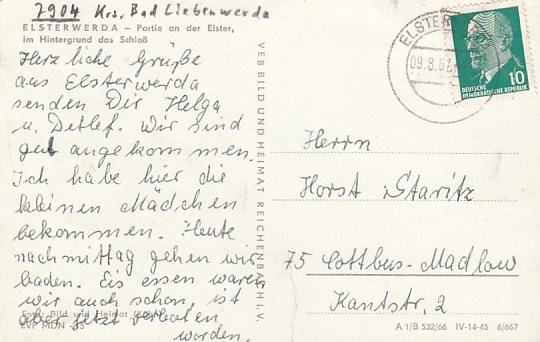 7904 Krs. Bad Liebenwerda
ELSTERWERDA – Partie an der Elster,
im Hintergrund das Schloß
Herzliche Grüße
aus Elsterwerda
senden Dir Helga
u. Detlef. Wir sind
gut angekommen.
Ich habe hier die
kleinen Mädchen
bekommen. Heute
nachmittag gehen wir
baden. Eis essen waren
wir auch schon, ist
aber jetzt verboten
worden.
Foto: Bild und Heimat
EVP MDN
VEB BILD UND HEIMAT REICHENBACH I. V.
ELSTER
09.8.6
10
DEUTSCHE
DEMOKRATISCHE REPUBLIK
Herrn
Horst Staritz
75 Cottbus-Madlow
Kantstr. 2
A 1/B 532/66 IV-14-45 6/667